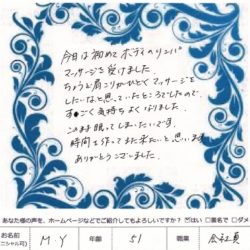 今日は初めてボディのリンパ
マッサージを受けました
ちょうど肩こりがひどくマッサージを
したいなと思っていたところでしたので、
すごく気持ちよくなりました。
このまま眠ってしまいたいです。
時間を作ってまた来たいと思います。
ありがとうございました。
あなた様の声を、ホームページなどでご紹介してもよろしいですか？ ☑はい □匿名で □ダメ
お名前 M.Y 年齢 51 職業 会社員
(イニシャル可)